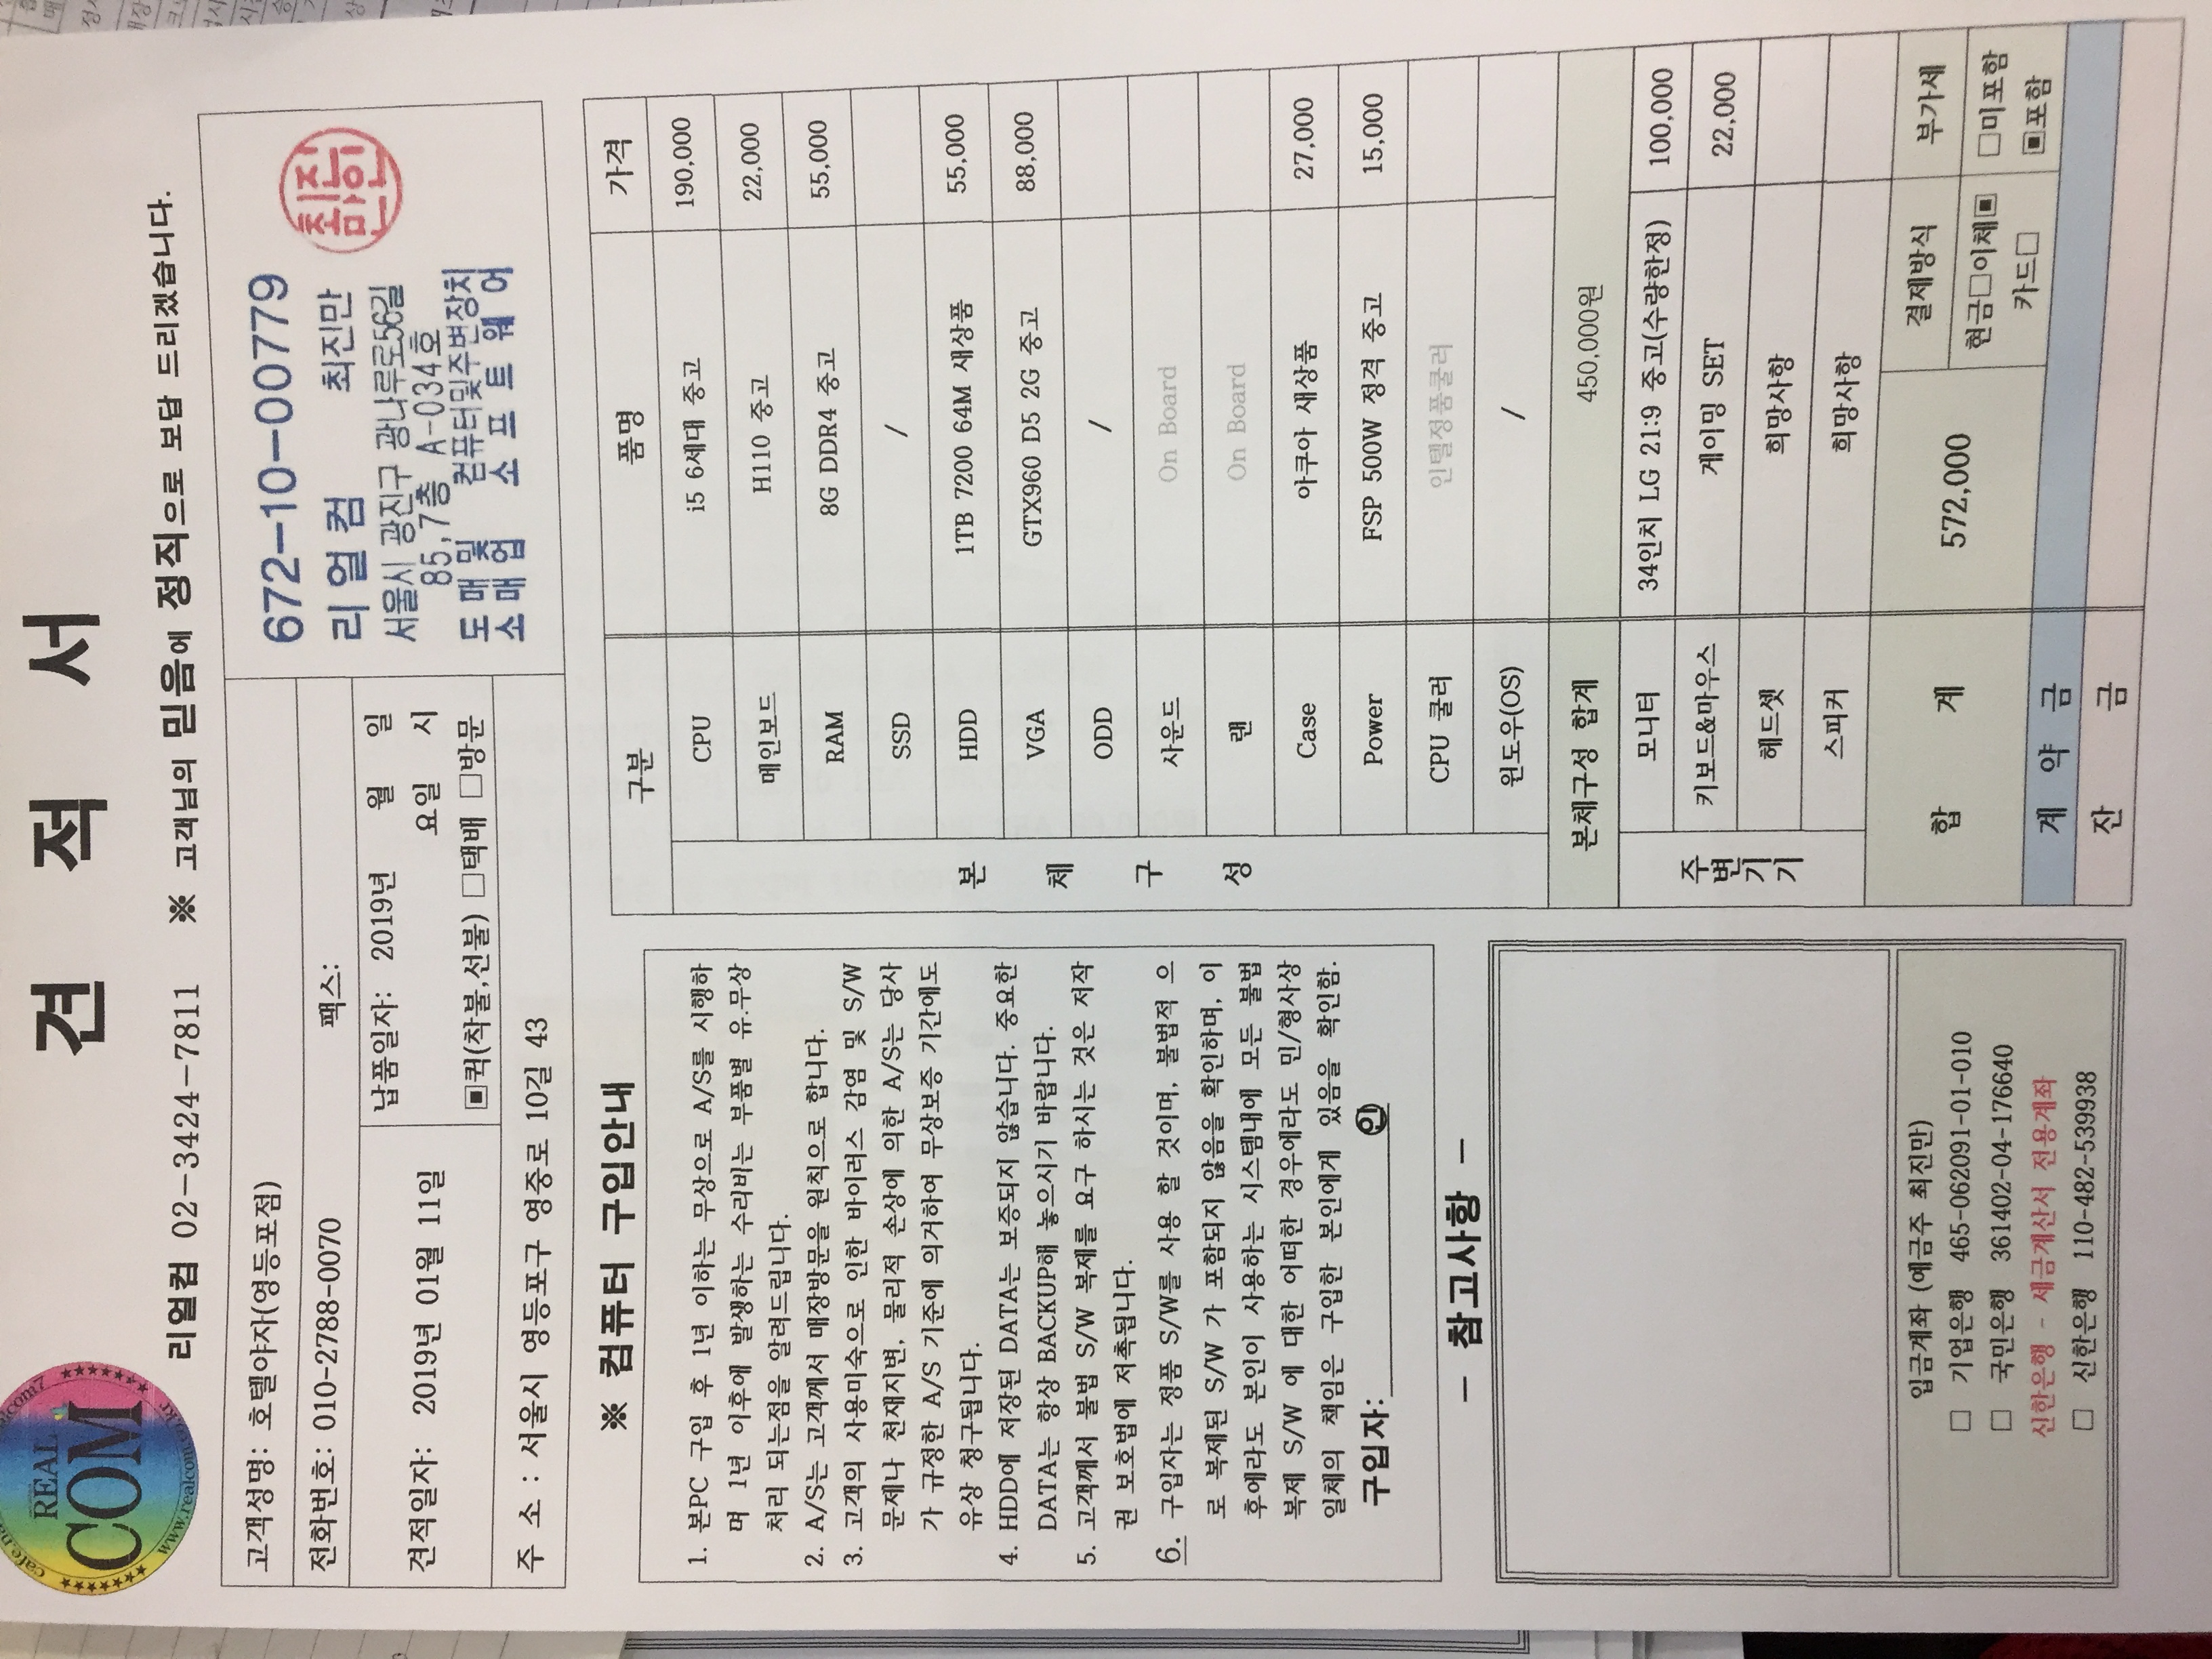 견 적 서
REAL
COM
www.realcom.or.kr
리얼컴 02-3424-7811 ※ 고객님의 믿음에 정직으로 보답 드리겠습니다.
고객성명: 호텔야자(영등포점)
전화번호: 010-2788-0070 팩스:
견적일자: 2019년 01월 11일
납품일자: 2019년 월 일
요일 시
▣퀵(착불,선불) □택배 □방문
주 소 : 서울시 영등포구 영중로 10길 43
672-10-00779
리얼컴 최진만
서울시 광진구 광나루로56길
85,7층 A-034호
도매및 컴퓨터및주변장치
소매업 소프트웨어
최진만인
※ 컴퓨터 구입안내
1. 본PC 구입 후 1년 이하는 무상으로 A/S를 시행하
며 1년 이후에 발생하는 수리비는 부품별 유.무상
처리 되는점을 알려드립니다.
2. A/S는 고객께서 매장방문을 원칙으로 합니다.
3. 고객의 사용미숙으로 인한 바이러스 감염 및 S/W
문제나 천재지변, 물리적 손상에 의한 A/S는 당사
가 규정한 A/S 기준에 의거하여 무상보증 기간에도
유상 청구됩니다.
4. HDD에 저장된 DATA는 보증되지 않습니다. 중요한
DATA는 항상 BACKUP해 놓으시기 바랍니다.
5. 고객께서 불법 S/W 복제를 요구 하시는 것은 저작
권 보호법에 저촉됩니다.
6. 구입자는 정품 S/W를 사용 할 것이며, 불법적 으
로 복제된 S/W 가 포함되지 않음을 확인하며, 이
후에라도 본인이 사용하는 시스템내에 모든 불법
복제 S/W 에 대한 어떠한 경우에라도 민/형사상
일체의 책임은 구입한 본인에게 있음을 확인함.
구입자: ㊞
- 참고사항 -
입금계좌 (예금주 최진만)
□ 기업은행 465-062091-01-010
□ 국민은행 361402-04-176640
신한은행 - 세금계산서 전용계좌
□ 신한은행 110-482-539938
구분 품명 가격
본 체 구 성
CPU i5 6세대 중고 190,000
메인보드 H110 중고 22,000
RAM 8G DDR4 중고 55,000
SSD /
HDD 1TB 7200 64M 새상품 55,000
VGA GTX960 D5 2G 중고 88,000
ODD /
사운드 On Board
랜 On Board
Case 아쿠아 새상품 27,000
Power FSP 500W 정격 중고 15,000
CPU 쿨러 인텔정품쿨러
윈도우(OS) /
본체구성 합계 450,000원
주변기기
모니터 34인치 LG 21:9 중고(수량한정) 100,000
키보드&마우스 게이밍 SET 22,000
헤드셋 희망사항
스피커 희망사항
합 계 572,000
결제방식 부가세
현금□이체▣ □미포함
카드□ ▣포함
계 약 금
잔 금